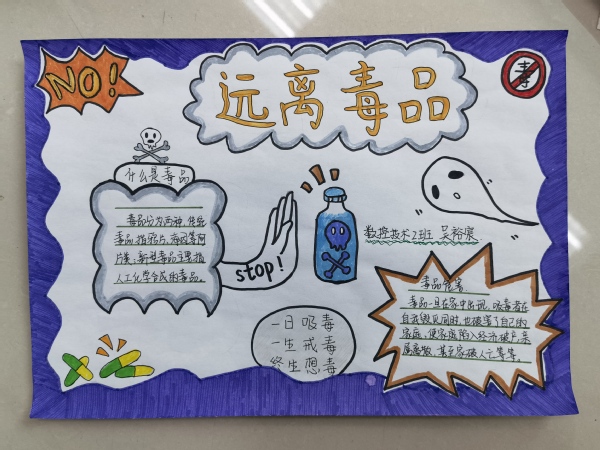 NO!
远离毒品
毒
什么是毒品
毒品分为两种,传统
毒品指鸦片、海洛因等阿
片类,新型毒品主要指
人工化学合成的毒品。
stop!
数控技术2班 吴裕宸
一日吸毒
一生戒毒
终生想毒
毒品危害
毒品一旦在家中出现,吸毒者在
自我毁灭同时,也破害了自己的
家庭,使家庭陷入经济破产、亲
属离散、甚至家破人亡等等。